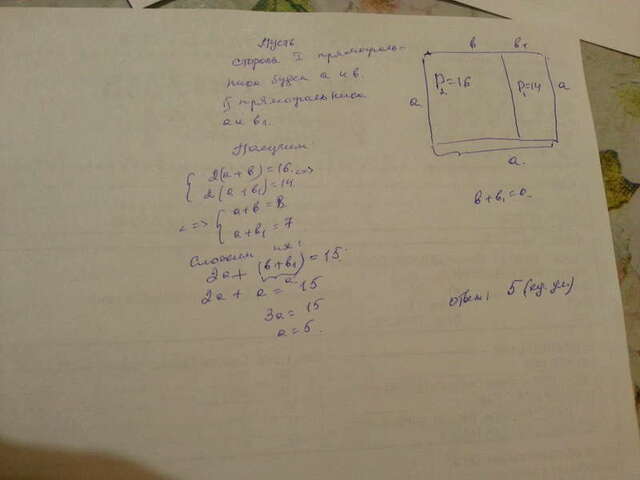 Пусть
сторона I прямоуголь-
ника будет a и в.
II прямоугольника
a и в₁.
Получим:
2(a+в)=16. <=>
2(a+в₁)=14.
<=> a+в=8.
a+в₁=7
Сложим их:
2a+(в+в₁)=15.
a
2a+a=15
3a=15
a=5.
в в₁
a P₂=16 P₁=14 a
a.
в+в₁=a.
ответ: 5 (